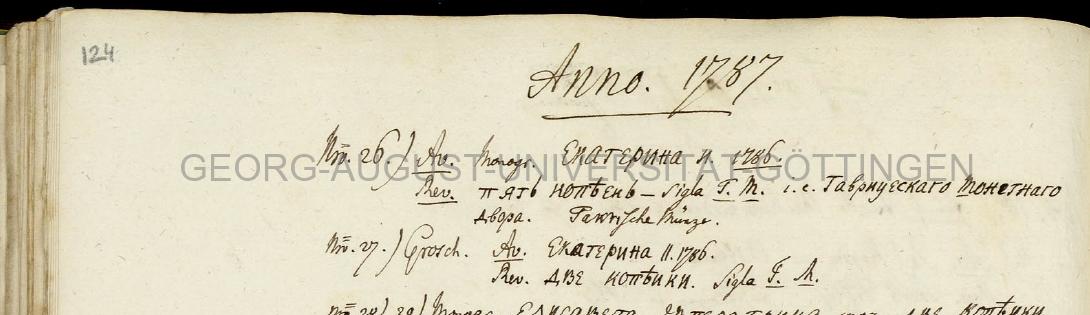 124
Anno. 1787.
GEORG-AUGUST-UNIVERSITÄT-GÖTTINGEN
Nro. 26.) Av. Monogr. Екатерина II. 1786.
Rev. пять копѣекъ – Sigla Т. М. i. e. Таврическаго Монетнаго
двора. Taurische Münze.
Nro. 27.) Grosch. Av. Екатерина II. 1786.
Rev. две копѣики. Sigla Т. М.